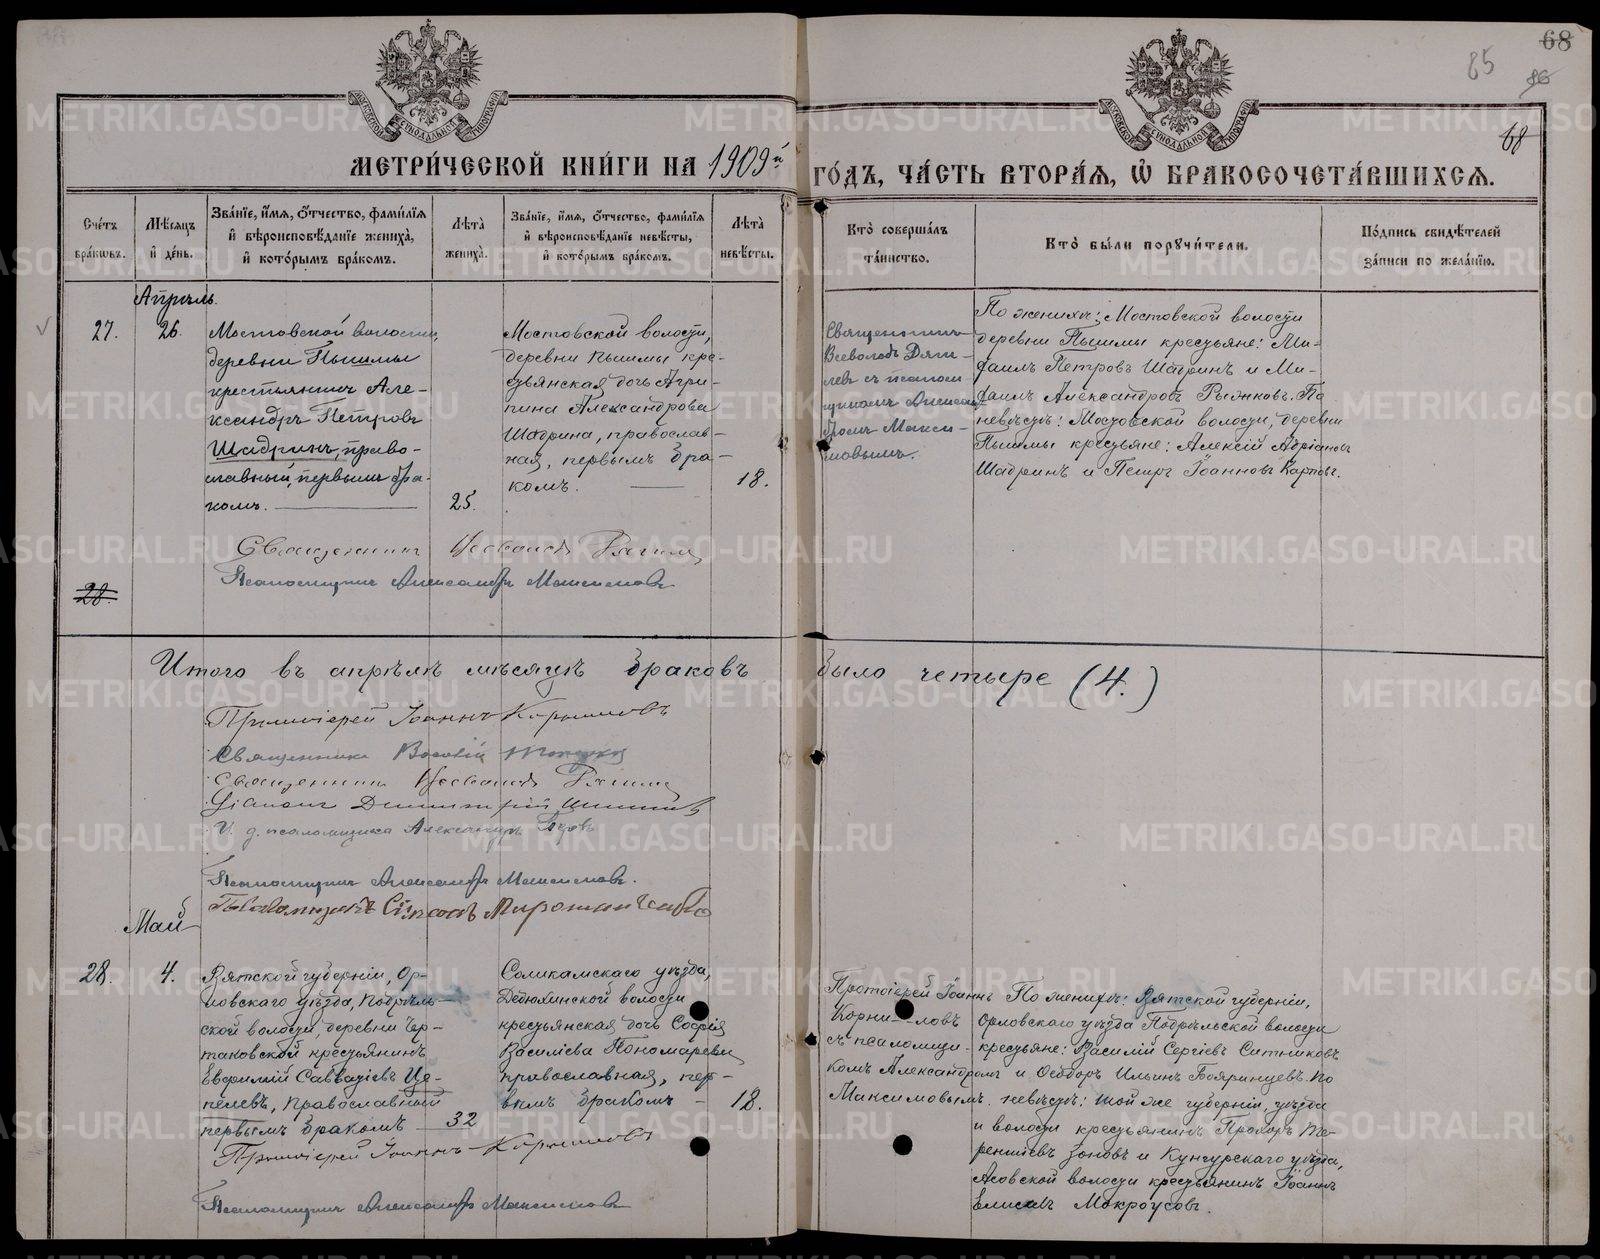 68
85
86
68
МОСКОВСКОЙ СѴНОДАЛЬНОЙ ТИПОГРАФІИ
МОСКОВСКОЙ СѴНОДАЛЬНОЙ ТИПОГРАФІИ
МЕТРИ́ЧЕСКОЙ КНИ́ГИ НА 1909й ГО́ДЪ, ЧА́СТЬ ВТОРА́Я, Ѡ҆ БРАКОСОЧЕТА́ВШИХСЯ.
Сче́тъ бра́кѡвъ.
Мѣ́сяцъ и҆ де́нь.
Зва́нїе, и҆́мя, ѻ҆́тчество, фами́лїя и҆ вѣроисповѣ́данїе жениха̀, и҆ кото́рымъ бра́комъ.
Лѣ́та жениха̀.
Зва́нїе, и҆́мя, ѻ҆́тчество, фами́лїя и҆ вѣроисповѣ́данїе невѣ́сты, и҆ кото́рымъ бра́комъ.
Лѣ́та невѣ́сты.
Кто̀ соверша́лъ та́инство.
Кто̀ бы́ли порꙋчи́тели.
По́дпись свидѣ́телей за́писи по жела́нїю.
Апрѣль.
27.
26.
Мостовской волости,
деревни Пышмы
крестьянинъ Але-
ксандръ Петровъ
Шадринъ, право-
славный, первымъ бра-
комъ.
25.
Мостовской волости,
деревни Пышмы кре-
стьянская дочь Агри-
пина Александрова
Шадрина, православ-
ная, первымъ бра-
комъ.
18.
Священникъ
Всеволодъ Дяги-
левъ съ псалом-
щикомъ Алексан-
дромъ Макси-
мовымъ.
По женихѣ: Мостовской волости
деревни Пышмы крестьяне: Ми-
хаилъ Петровъ Шадринъ и Ми-
хаилъ Александровъ Рыжковъ. По
невѣстѣ: Мостовской волости, деревни
Пышмы крестьяне: Алексій Адріановъ
Шадринъ и Петръ Іоанновъ Карповъ.
Священникъ Всеволодъ Дягилевъ
Псаломщикъ Александръ Максимовъ
28.
Итого въ апрѣлѣ мѣсяцѣ браковъ было четыре (4.)
Протоіерей Іоаннъ Корниловъ
Священникъ
Священникъ Всеволодъ Дягилевъ
Діаконъ Димитрій
И. д. псаломщика Александръ
Псаломщикъ Александръ Максимовъ.
Псаломщикъ Симеонъ Мирошниченко
Май
28.
4.
Вятской губерніи, Ор-
ловскаго уѣзда, Подрѣль-
ской волости, деревни Чер-
таковской крестьянинъ
Евфимій Савватіевъ Це-
пелевъ, православный
первымъ бракомъ
32
Соликамскаго уѣзда,
Дедюхинской волости
крестьянская дочь Софія
Василіева Пономарева
православная, пер-
вымъ бракомъ -
18.
Протоіерей Іоаннъ
Корни-ловъ
съ псаломщи-
комъ Александромъ
Максимовымъ.
По женихѣ: Вятской губерніи,
Орловскаго уѣзда Подрѣльской волости
крестьяне: Василій Сергіевъ Ситниковъ
и Ѳеодоръ Ильинъ Бояринцевъ. По
невѣстѣ: той же губерніи, уѣзда
и волости крестьянинъ Прохоръ Те-
рентіевъ Зоновъ и Кунгурскаго уѣзда,
Асовской волости крестьянинъ Іоаннъ
Елисѣевъ Мокроусовъ.
Протоіерей Іоаннъ Корниловъ
Псаломщикъ Александръ Максимовъ
METRIKI.GASO-URAL.RU